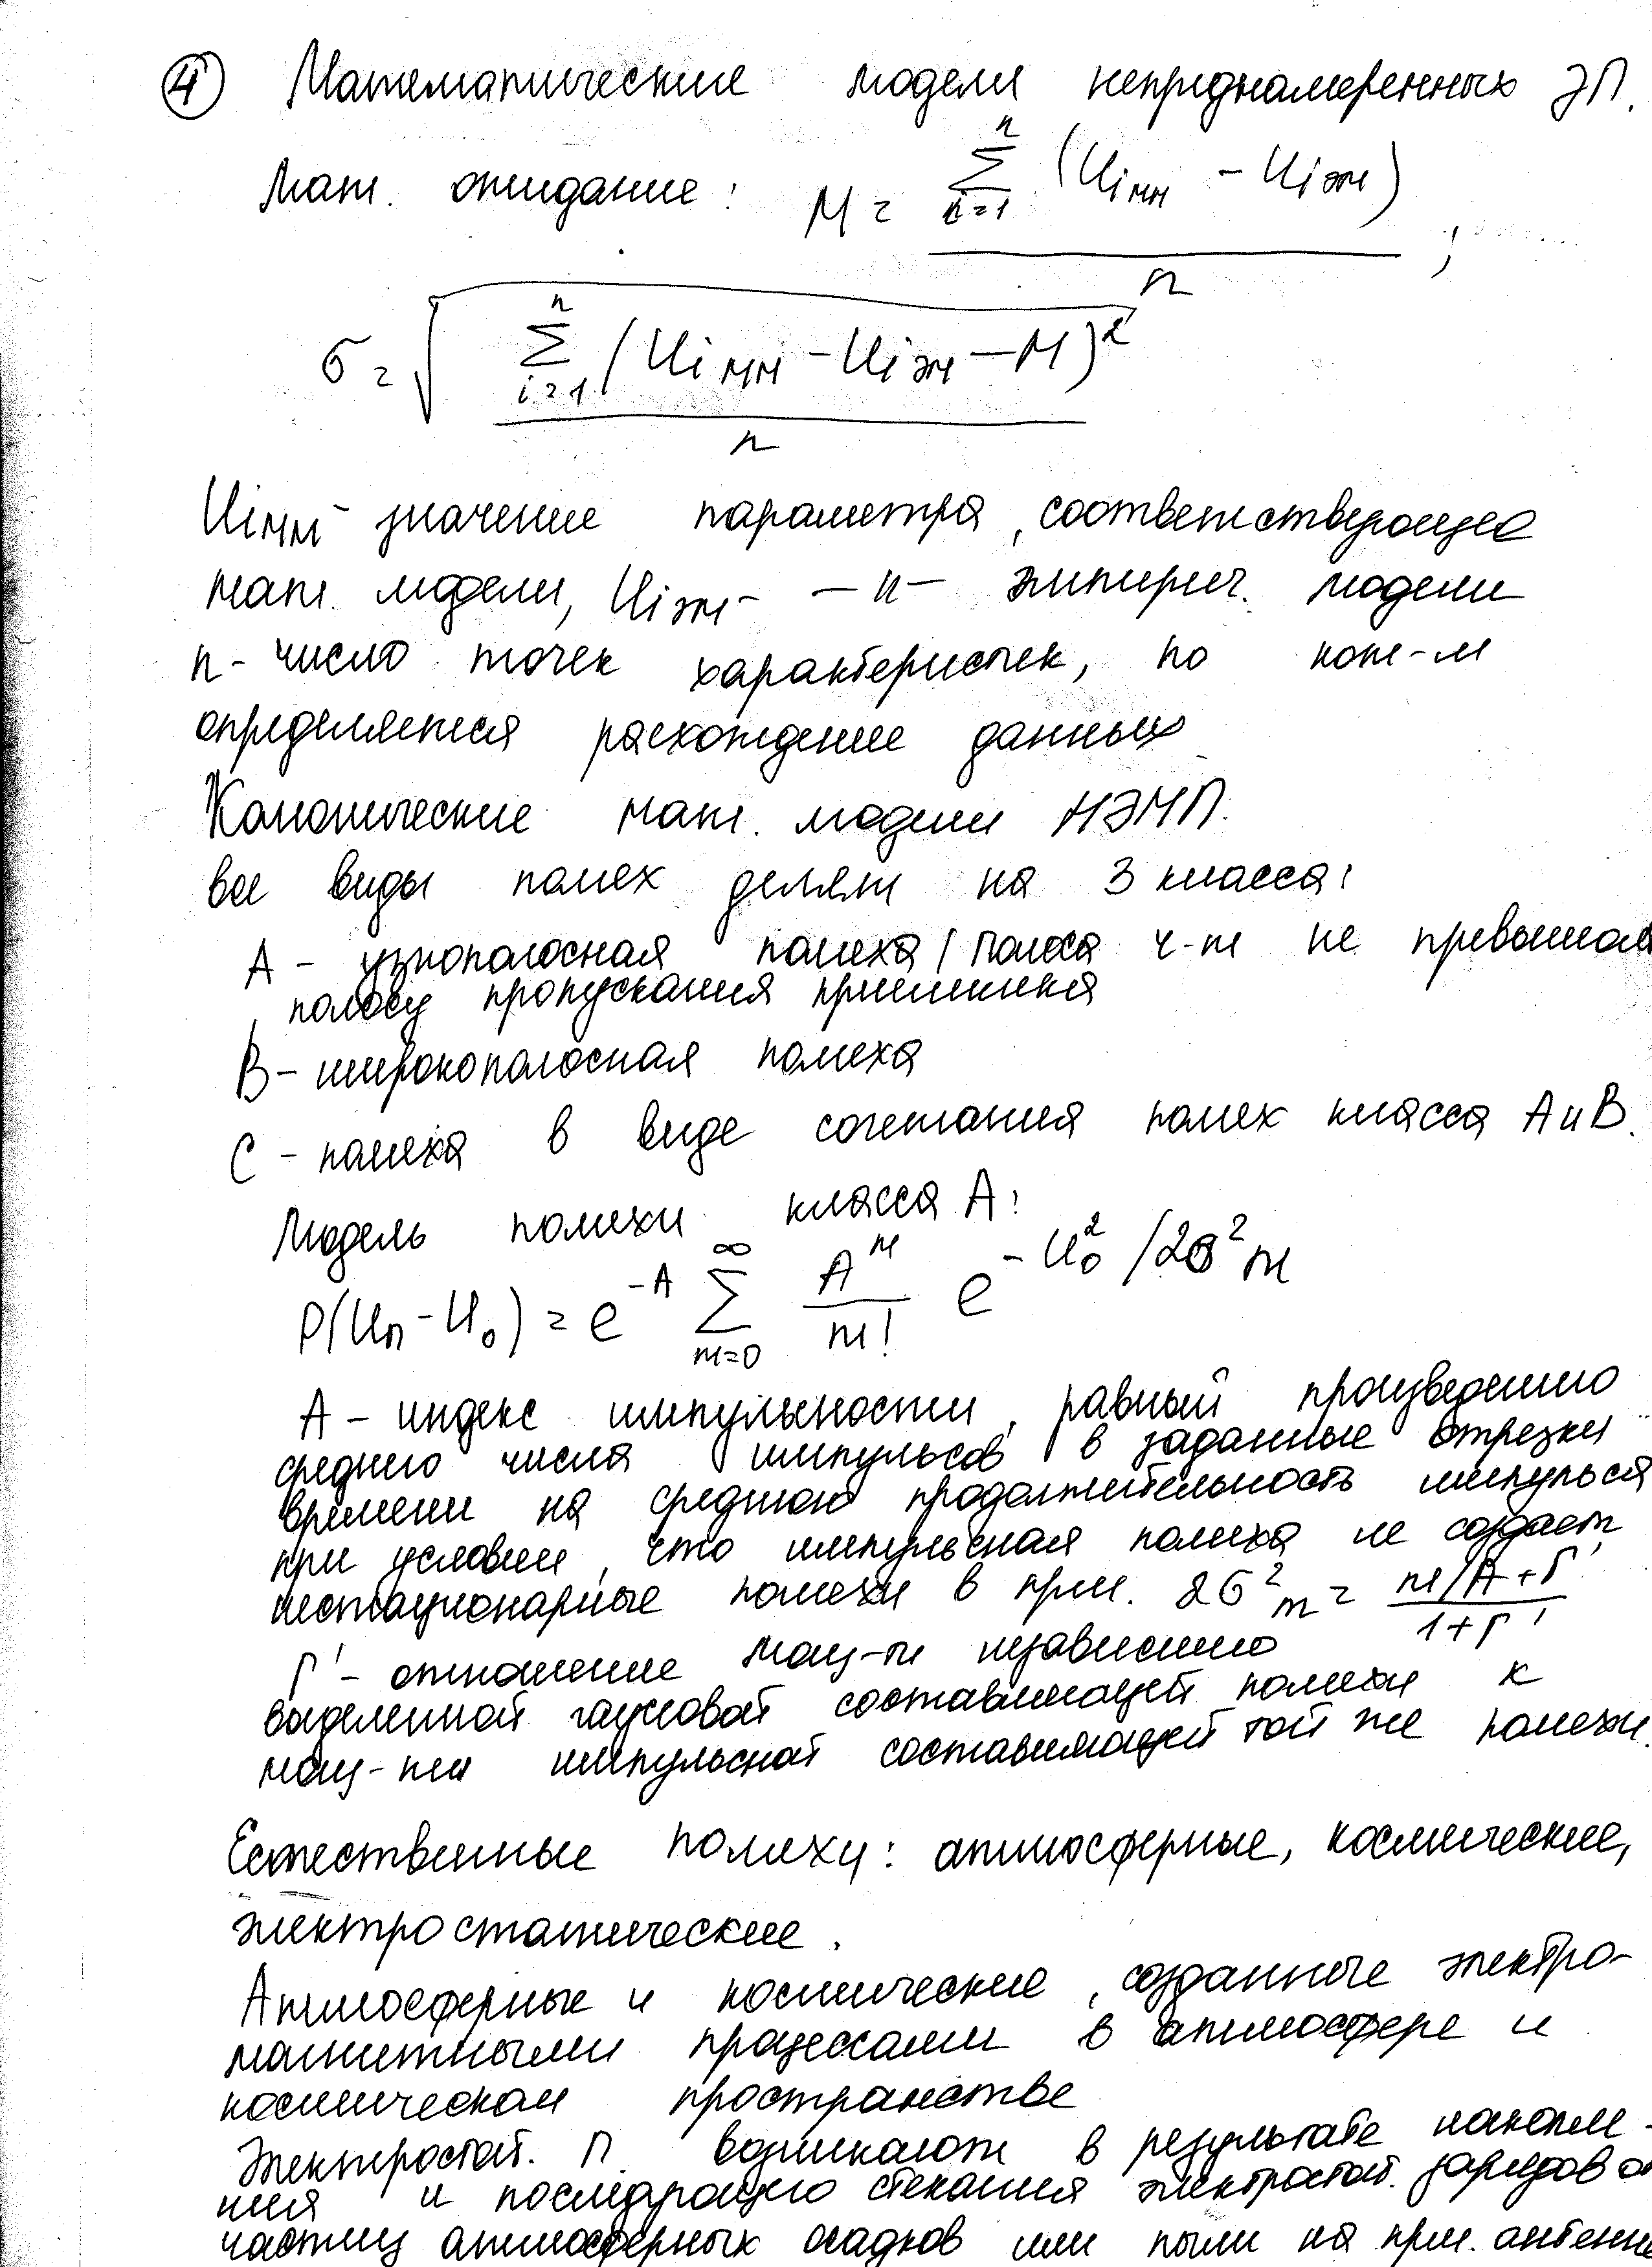 ④ Математические модели непреднамеренных ЭП.
Мат. ожидание: M = \frac{\sum_{i=1}^{n} (U_{iмм} - U_{iэм})}{n};
σ = \sqrt{\frac{\sum_{i=1}^{n} (U_{iмм} - U_{iэм} - M)^2}{n}}
U_{iмм} - значение параметра, соответствующее
мат. модели, U_{iэм} - -"- эмпирич. модели
n - число точек характеристик, по кот-м
определяется расхождение данных
Канонические мат. модели НЭМП.
все виды помех делят на 3 класса:
А - узкополосная помеха / полоса ч-т не превышает
полосу пропускания приемника
В - широкополосная помеха
С - помеха в виде сочетания помех класса А и В.
Модель помехи класса А:
P(U_п - U_0) = e^{-A} \sum_{m=0}^{∞} \frac{A^m}{m!} e^{-U_0^2 / 2σ^2 m}
А - индекс импульсности, равный произведению
среднего числа импульсов в заданные отрезки
времени на среднюю продолжительность импульса
при условии, что импульсная помеха не создает
нестационарные помехи в прм. 2σ^2_m = \frac{m/A + Г'}{1 + Г'}
Г' - отношение мощ-ти независимо
выделенной гауссовой составляющей помехи к
мощ-ти импульсной составляющей той же помехи.
Естественные помехи: атмосферные, космические,
электростатические.
Атмосферные и космические, созданные электро-
магнитными процессами в атмосфере и
космическом пространстве
Электростат. П. возникают в результате накопле-
ния и последующего стекания электростат. зарядов от
частиц атмосферных осадков или пыли на прм. антенне